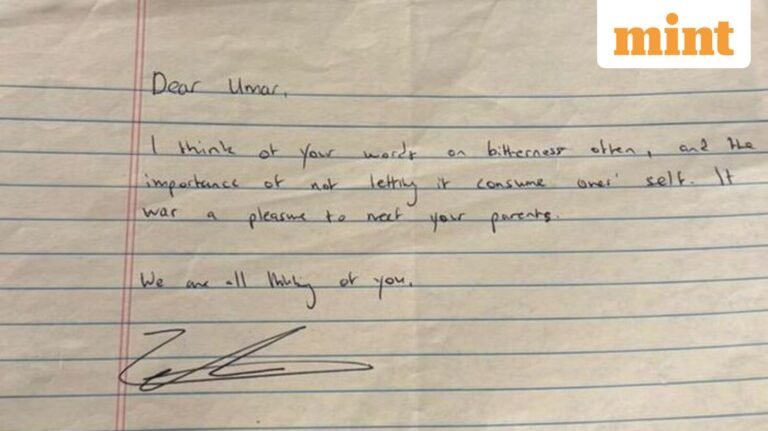 mint
Dear Umar,
I think of your words on bitterness often, and the
importance of not letting it consume ones' self. It
was a pleasure to meet your parents.
We are all thinking of you.